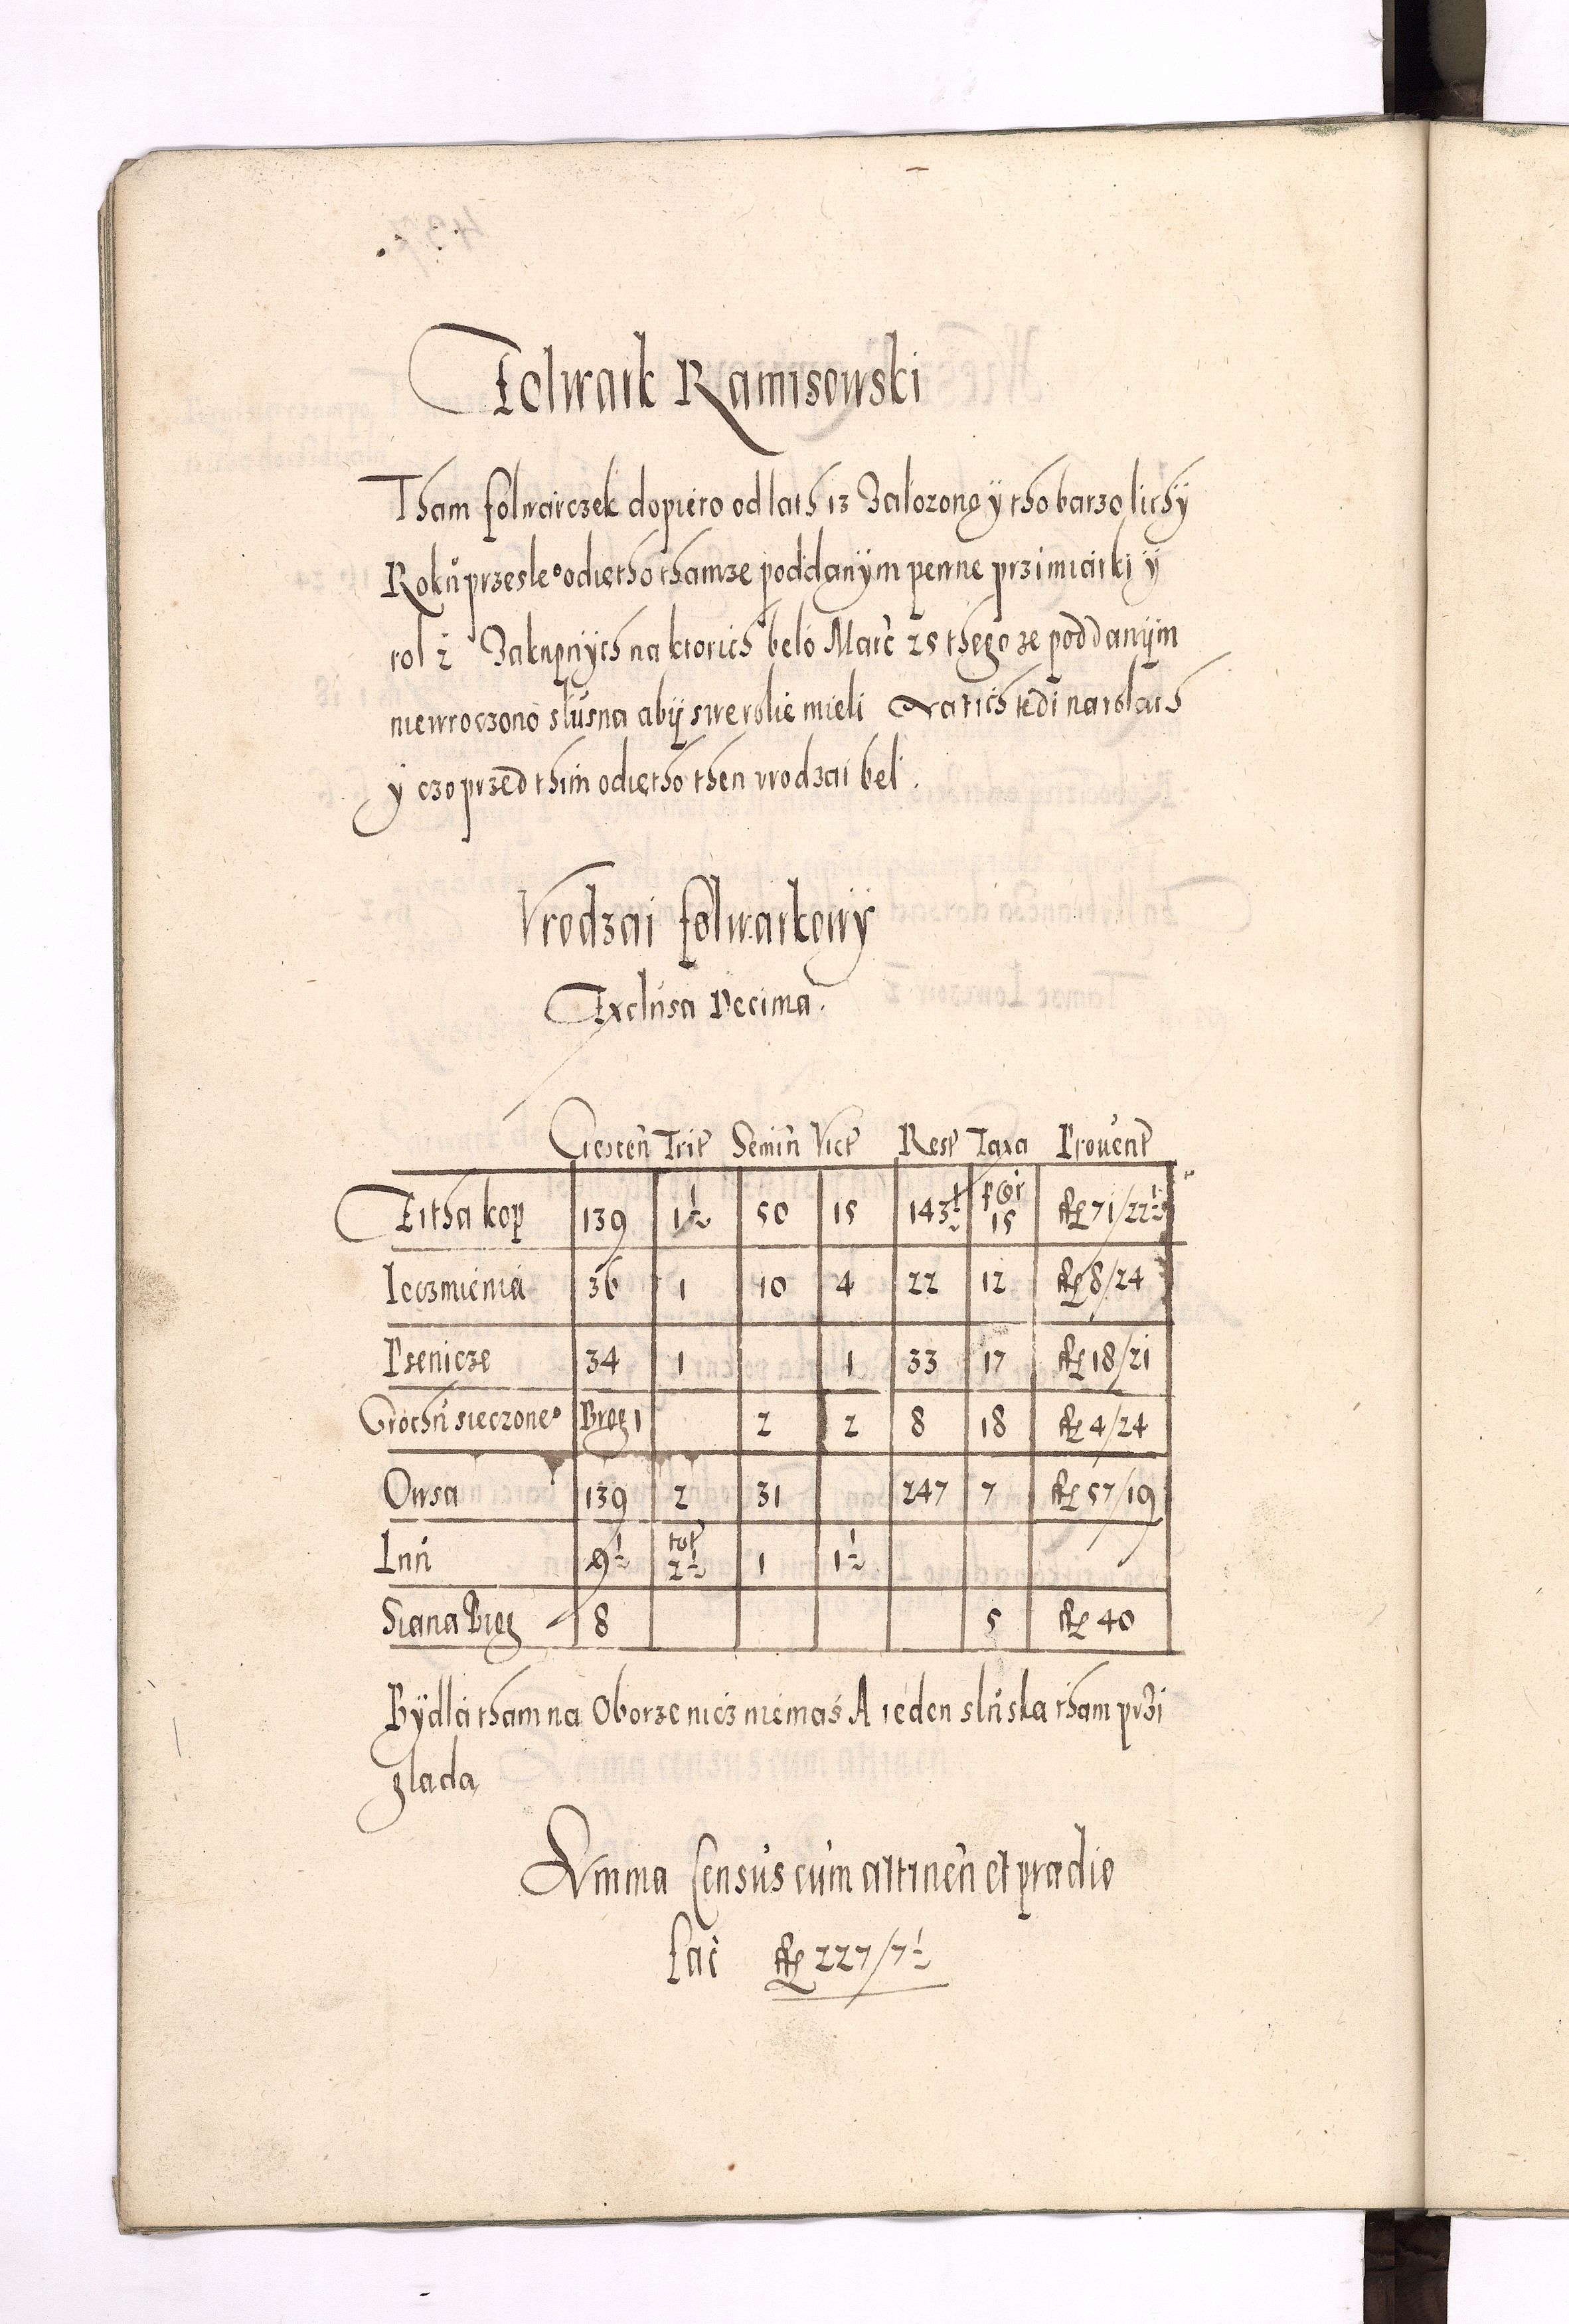 Folwark Ramisowski
Tham folwarczek dopiero od lath 13 Zalozono ÿ tho barzo lichÿ
Roku przesłe° odiętho thamze poddanÿm pewne przimiarki ÿ
rol 2 Zakupnÿch na ktorich belo Marc 25 thego ze poddanÿm
niewroczono slusna abÿ swe rolie mieli Na tich tedi na rolach
ÿ czo przed thim odiętho then vrodzai bel.
Vrodzai folwarkowÿ
Exclusa Decima.
Crescen Trit Semin Vict Rest Taxa Prouent
Zitha kop 139 1½ 50 15 143½ p Cor 15 fl 71/22½
Ieczmienia 36 1 10 4 22 12 fl 8/24
Psenicze 34 1 1 33 17 fl 18/21
Grochu sieczone° Brog 1 2 2 8 18 fl 4/24
Owsa 139 2 31 247 7 fl 57/19
Lnu 9½ tot 2½ 1 1½
Siana Brog 8 5 fl 40
Bÿdla tham na Oborze nicz niemas A ieden sluska tham przi
glada
Summa Census cum attinen et praedio
fac fl 227/7½